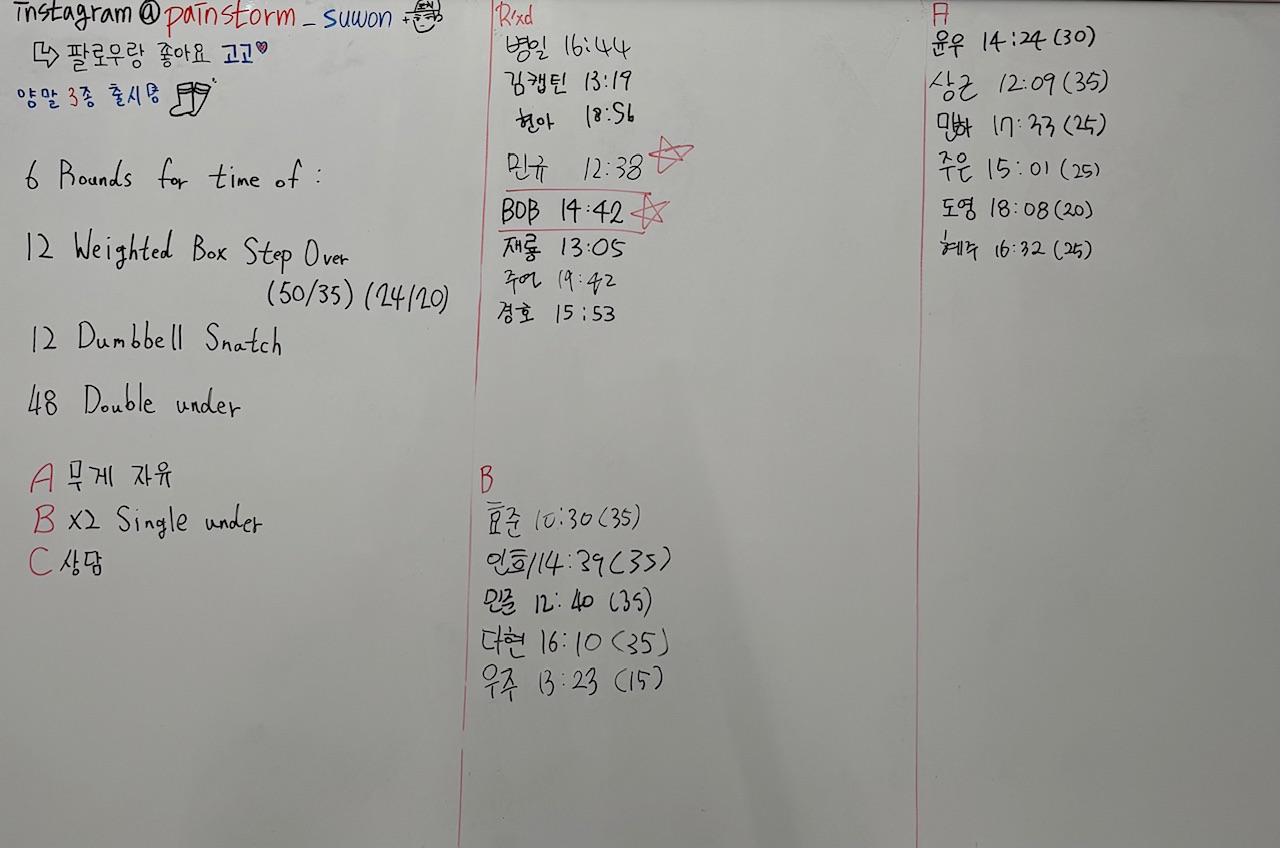 instagram@painstorm_suwon
팔로우랑 좋아요 고고
양말 3종 출시중
6 Rounds for time of :
12 Weighted Box Step Over
(50/35) (24/20)
12 Dumbbell Snatch
48 Double under
A 무게 자유
B x2 Single under
C 상담
R'xd
병일 16:44
김캡틴 13:19
현아 18:56
민규 12:38
BOB 14:42
재룡 13:05
주어 19:42
경호 15:53
B
효준 10:30(35)
인호 14:39(35)
민준 12:40 (35)
다현 16:10 (35)
우주 13:23 (15)
A
윤우 14:24(30)
상근 12:09(35)
민하 17:33(25)
주은 15:01(25)
도영 18:08(20)
혜주 16:32(25)